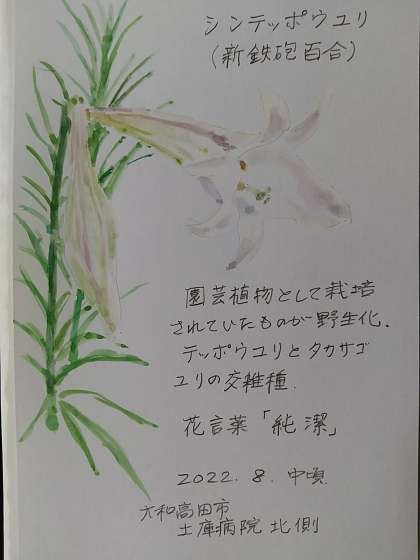 シンテッポウユリ
(新鉄砲百合)
園芸植物として栽培
されていたものが野生化.
テッポウユリとタカサゴ
ユリの交雑種.
花言葉「純潔」
2022. 8. 中頃.
大和高田市
土庫病院 北側